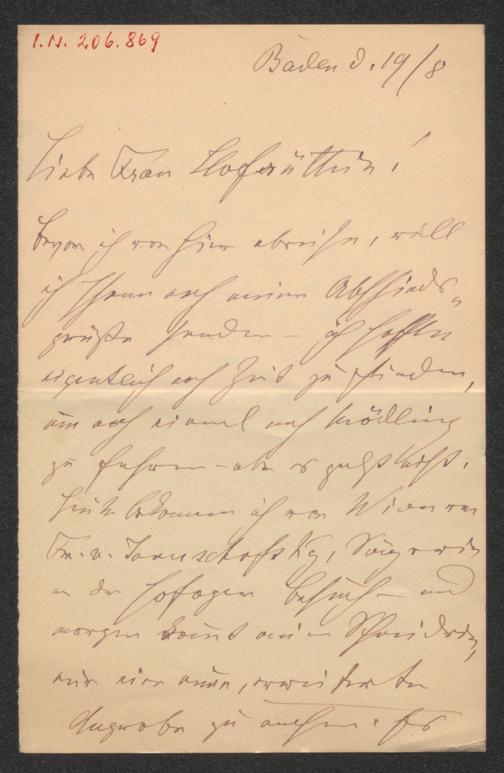 I.N. 206.869
Baden d. 19/8
Liebe Frau Hofräthin!
Bevor ich von hier abreise, will
ich Ihnen noch meine Abschieds-
grüße senden – ich hoffte
eigentlich noch Zeit zu finden,
um noch einmal nach Mödling
zu fahren – aber es geht nicht.
Heute bekomme ich von Wien von
Fr. v. Januschofsky, Sängerin
an der Hofoper Besuch – und
morgen kommt meine Schneiderin,
mir eine neue, erweiterte
Angrobe zu machen. Es